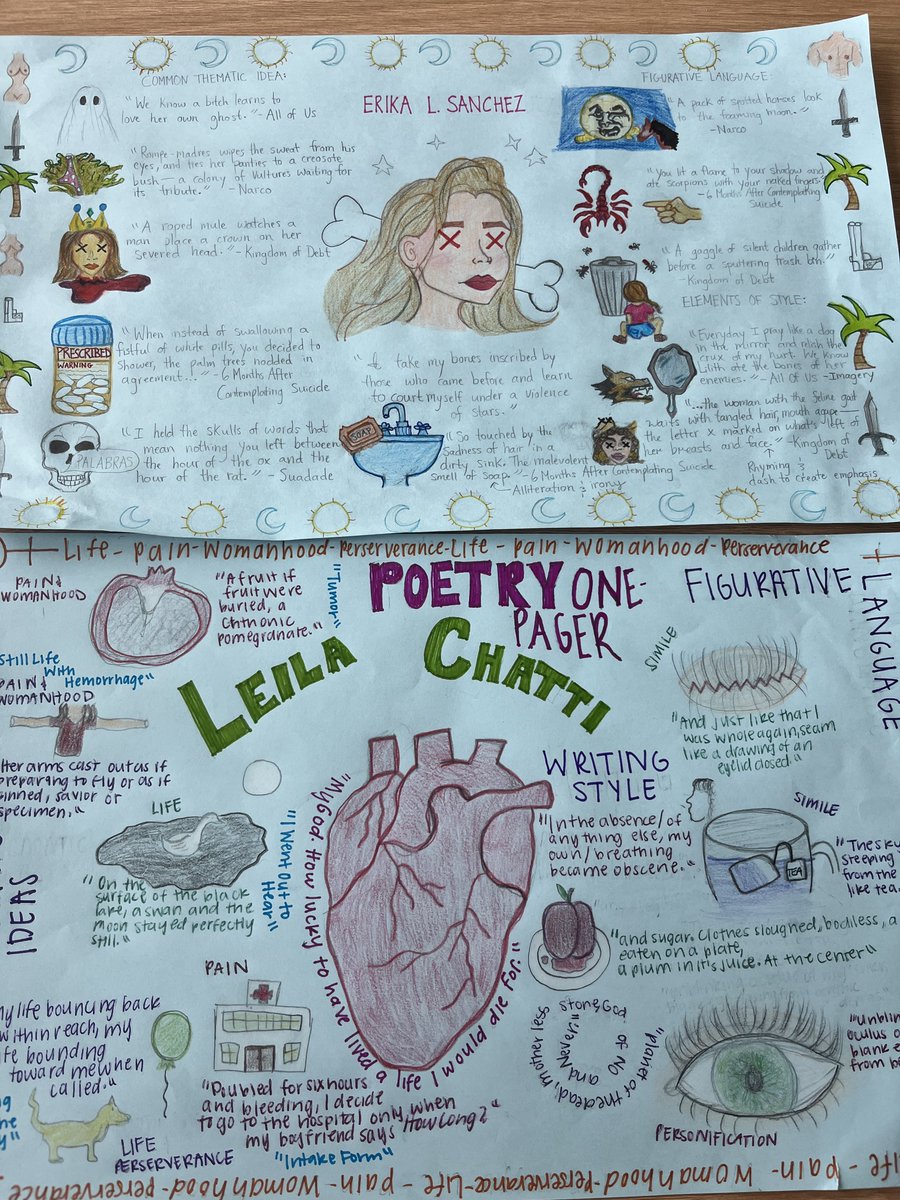 COMMON THEMATIC IDEA:
"We know a bitch learns to
love her own ghost."- All of Us
"Rompe-madres wipes the sweat from his
eyes, and ties her panties to a creosote
bush— a colony of vultures waiting for
its tribute." - Narco
"A roped mule watches a
man place a crown on her
severed head."- Kingdom of Debt
"When instead of swallowing a
fistful of white pills, you decided to
Shower, the palm trees nodded in
agreement..."- 6 Months After
Contemplating Suicide
PRESCRIBED
WARNING
"I held the skulls of words that
mean nothing you left between
the hour of the ox and the
hour of the rat." - Suadade
PALABRAS
ERIKA L. SANCHEZ
"I take my bones inscribed by
those who came before and learn
to court myself under a violence
of stars."
SOAP
"So touched by the
Sadness of hair in a
dirty sink. The malevolent
smell of soap."- 6 Months After Contemplating Suicide
Alliteration & irony
FIGURATIVE LANGUAGE:
"A pack of spotted horses look
to the foaming moon."
-Narco
"you lit a flame to your shadow and
ate scorpions with your naked fingers."
- 6 Months After Contemplating
Suicide
"A gaggle of silent children gather
before a sputtering trash bin."
-Kingdom of Debt
ELEMENTS OF STYLE:
"Everyday I play like a dog
in the mirror and relish the
crux of my hurt. We know
Lilith ate the bones of her
enemies." - All of Us -Imagery
"...the woman with the feline gait
waits with tangled hair, mouth agape—
the letter X marked on what's left of
her breasts and face."-Kingdom of
Debt
Rhyming &
dash to create emphasis
Life - pain - Womanhood - Perserverance - Life - pain - Womanhood - Perserverance
POETRY ONE-
PAGER
LEILA CHATTI
PAIN &
WOMANHOOD
"A fruit if
fruit were
buried, a
chthonic
pomegranate."
"Tumor"
Still Life
With
Hemorrhage"
PAIN &
WOMANHOOD
Her arms cast out as if
preparing to fly or as if
pinned, savior or
specimen."
IDEAS
LIFE
"On the
surface of the black
lake, a swan and the
moon stayed perfectly
still."
"I Went Out to
Hear"
PAIN
my life bouncing back
within reach, my
life bounding
toward me when
called."
LIFE
PERSERVERANCE
"Doubled for six hours
and bleeding, I decide
to go to the hospital only when
my boyfriend says "How Long?"
"Intake Form"
"My God. How lucky to have lived a life I would die for."
FIGURATIVE
LANGUAGE
SIMILE
"And just like that I
was whole again, seam
like a drawing of an
eyelid closed."
WRITING
STYLE
"In the absence/ of
anything else, my
own/ breathing
became obscene."
SIMILE
TEA
"The sky
steeping
from the
like tea.
"and sugar. Clothes sloughed, bodiless, a
eaten on a plate,
a plum in it's juice. At the center"
"planet of the dead, mother less
stone, God
of NO
and Never."
"Unblin
oculus o
blank e
from b
PERSONIFICATION
Life - pain - Womanhood - Perserverance - Life - pain - Womanhood - Perserverance